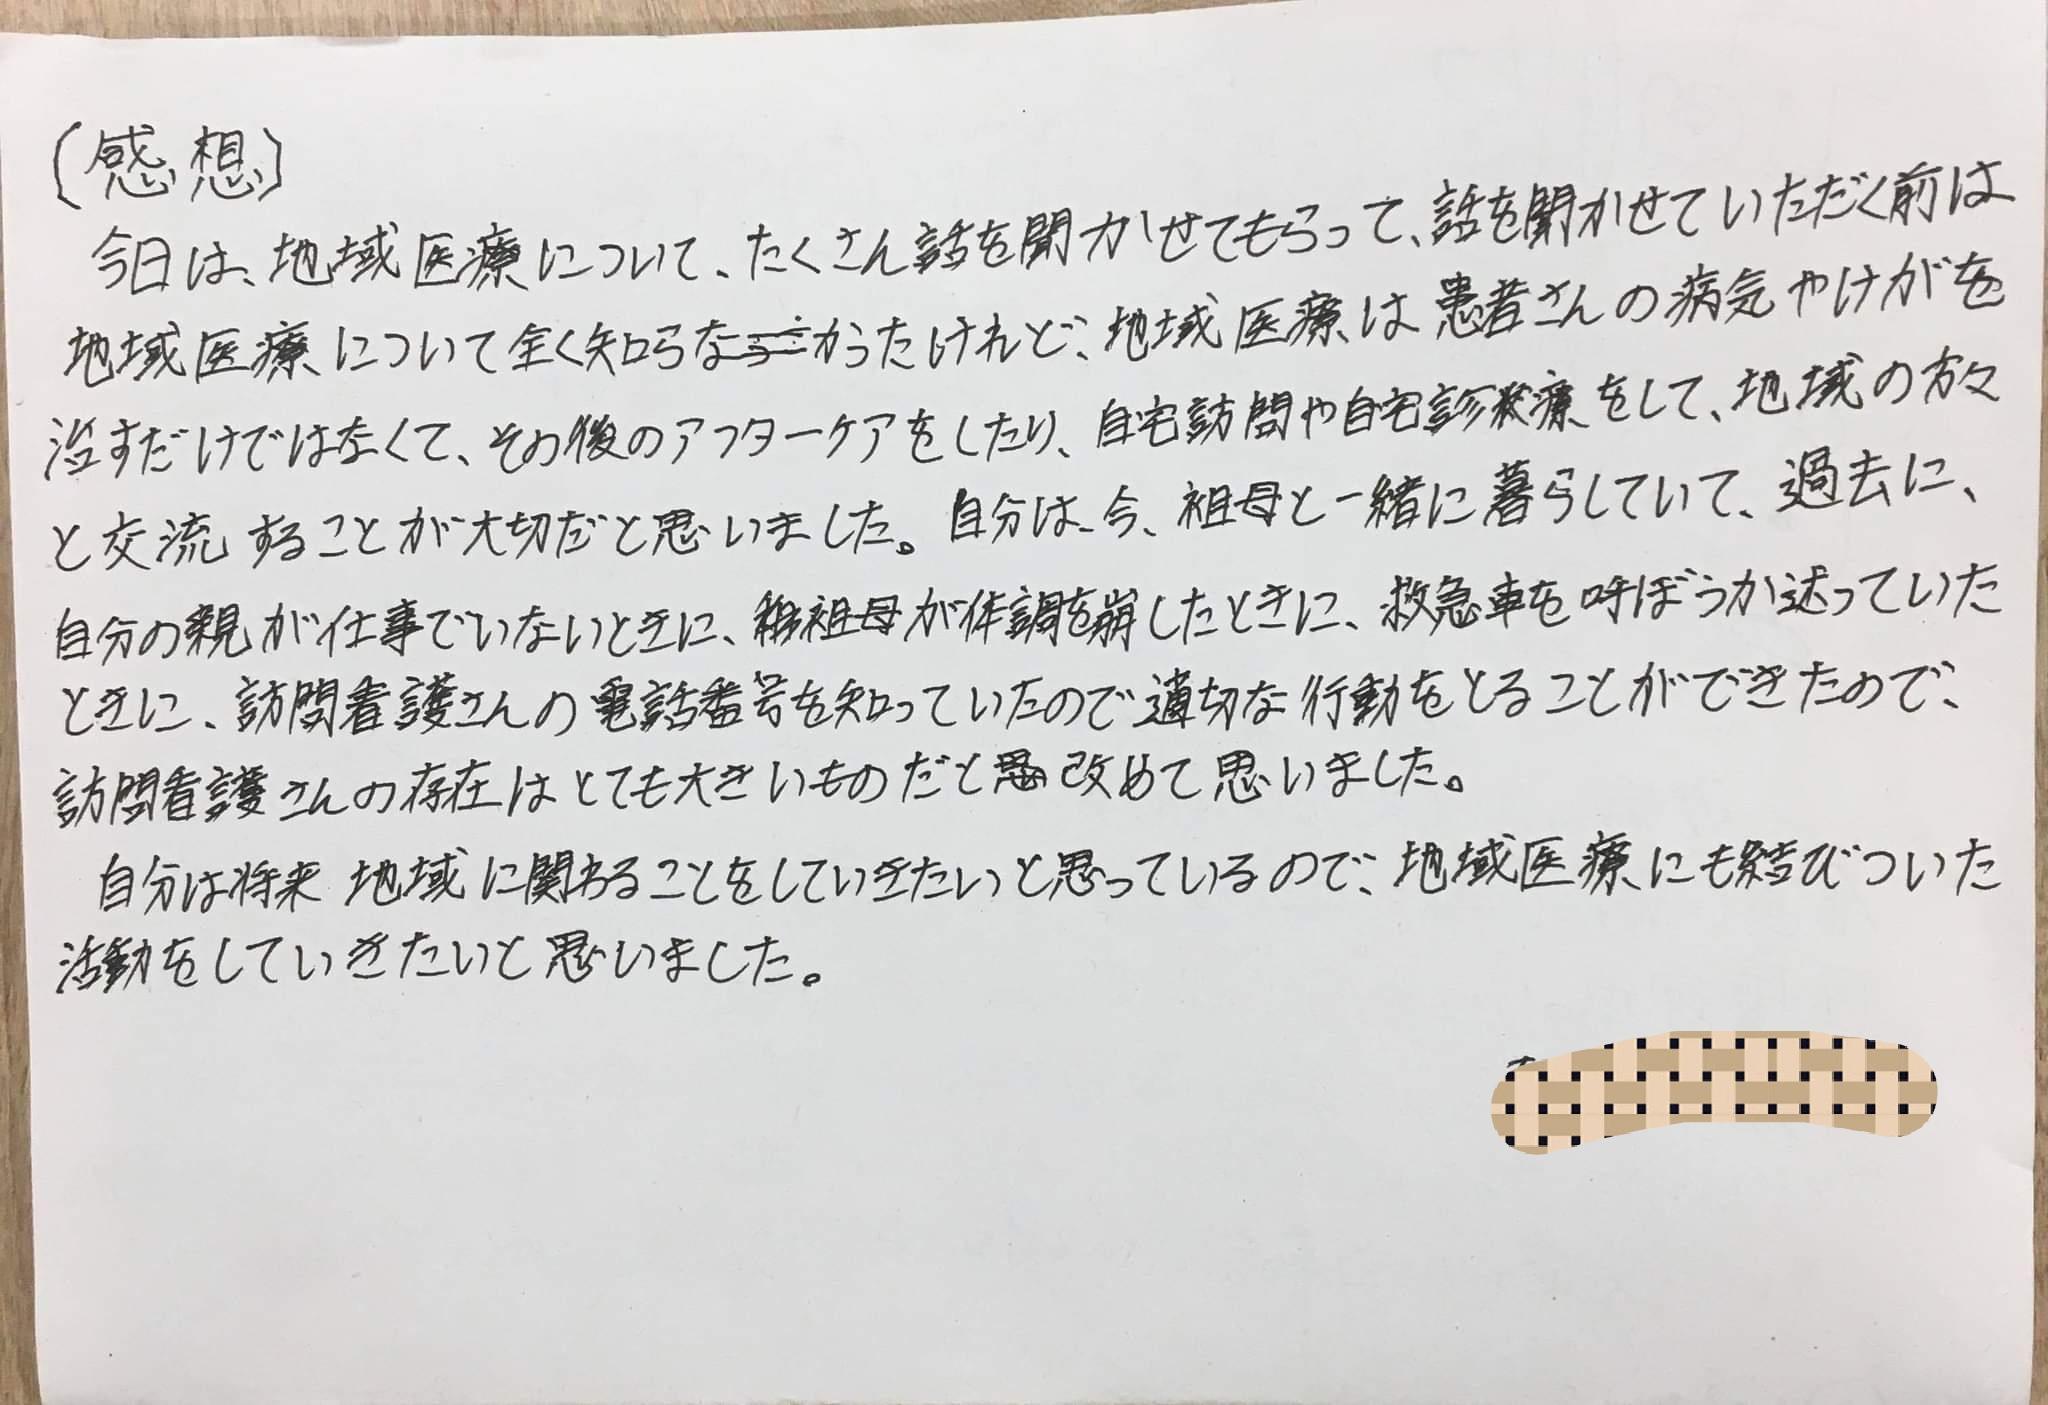 (感想)
今日は、地域医療について、たくさん話を聞かせてもらって、話を聞かせていただく前は
地域医療について全く知らなかったけれど、地域医療は患者さんの病気やけがを
治すだけではなくて、その後のアフターケアをしたり、自宅訪問や自宅診療をして、地域の方々
と交流することが大切だと思いました。自分は、今、祖母と一緒に暮らしていて、過去に、
自分の親が仕事でいないときに、祖母が体調を崩したときに、救急車を呼ぼうか迷っていた
ときに、訪問看護さんの電話番号を知っていたので適切な行動をとることができたので、
訪問看護さんの存在はとても大きいものだと改めて思いました。
自分は将来地域に関わることをしていきたいと思っているので、地域医療にも結びついた
活動をしていきたいと思いました。